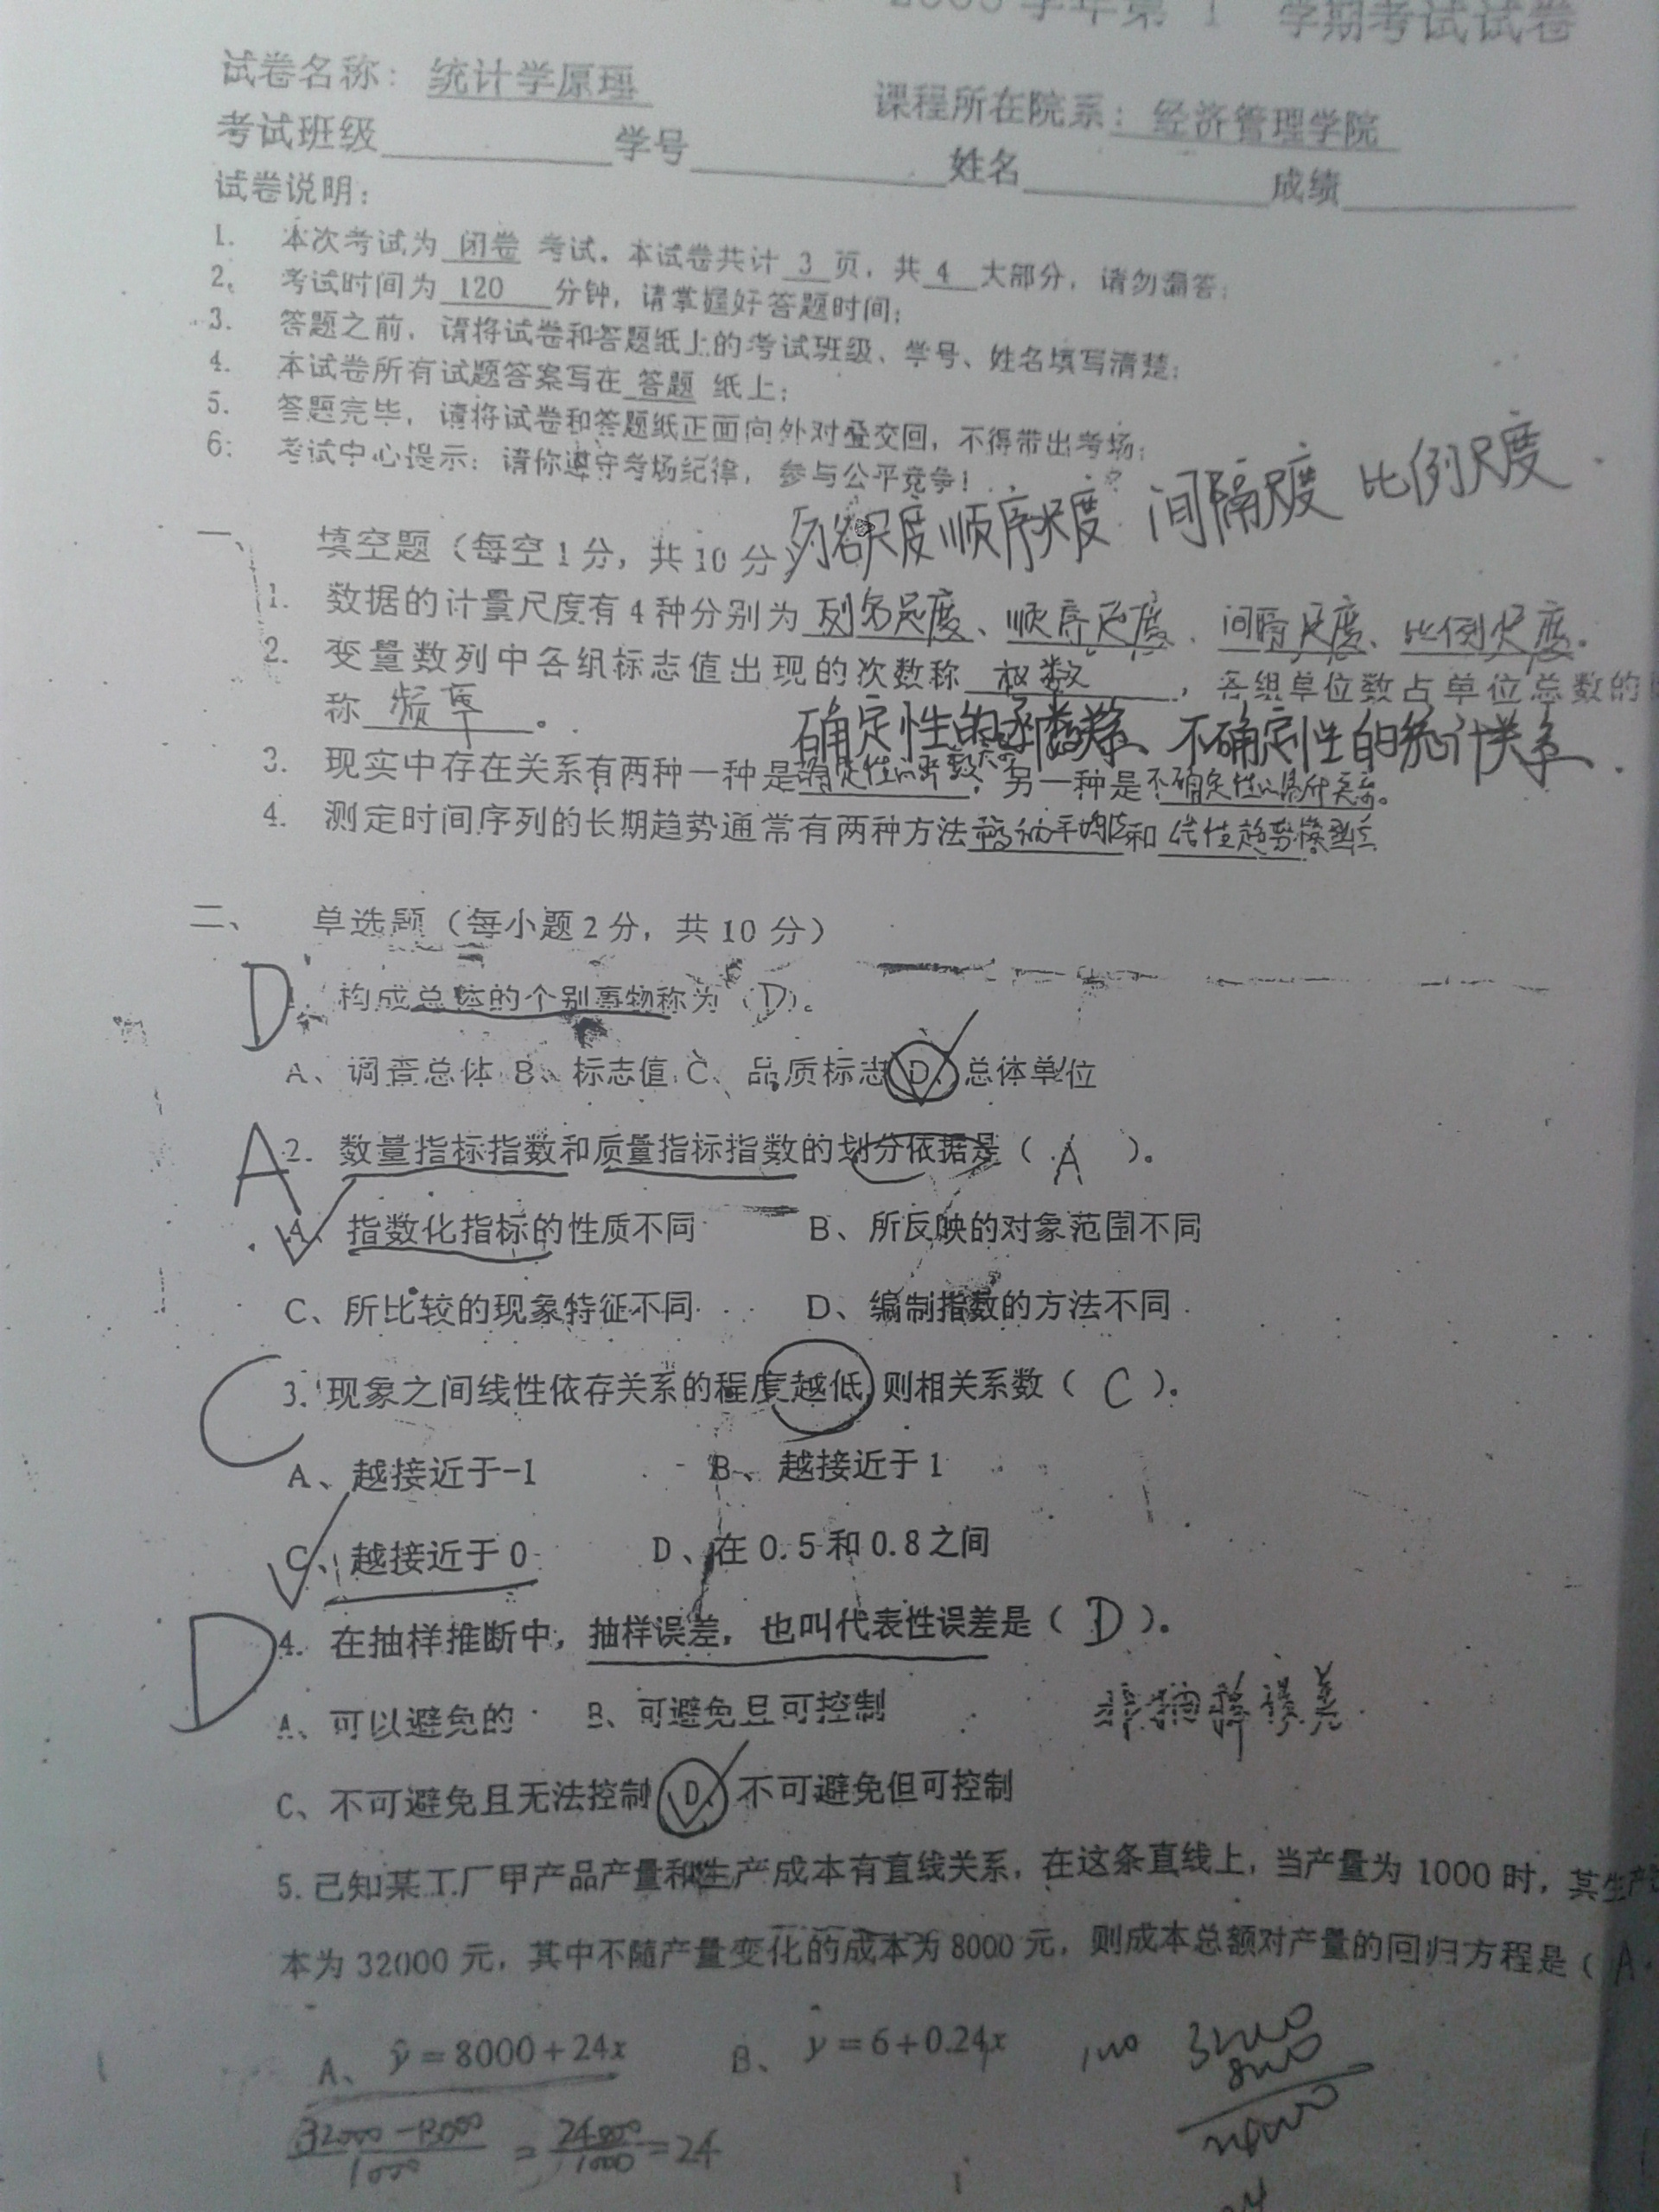 学年第 1 学期考试试卷
试卷名称：统计学原理
课程所在院系：经济管理学院
考试班级 学号 姓名 成绩
试卷说明：
1. 本次考试为 闭卷 考试。本试卷共计 3 页，共 4 大部分，请勿漏答；
2. 考试时间为 120 分钟，请掌握好答题时间；
3. 答题之前，请将试卷和答题纸上的考试班级、学号、姓名填写清楚；
4. 本试卷所有试题答案写在 答题 纸上；
5. 答题完毕，请将试卷和答题纸正面向外对叠交回，不得带出考场；
6: 考试中心提示：请你遵守考场纪律，参与公平竞争！
列名尺度 顺序尺度 间隔尺度 比例尺度
一、 填空题（每空1分，共10分）
1. 数据的计量尺度有4种分别为 列名尺度、顺序尺度、间隔尺度、比例尺度。
2. 变量数列中各组标志值出现的次数称 权数 ，各组单位数占单位总数的
称 频率 。
确定性的函数关系、不确定性的统计关系
3. 现实中存在关系有两种一种是确定性的函数关系，另一种是不确定性的统计关系。
4. 测定时间序列的长期趋势通常有两种方法移动平均法和 线性趋势模型法
二、 单选题（每小题2分，共10分）
D 1. 构成总体的个别事物称为（D）。
A、调查总体 B、标志值 C、品质标志 D、总体单位
A 2. 数量指标指数和质量指标指数的划分依据是（ A ）。
A、指数化指标的性质不同 B、所反映的对象范围不同
C、所比较的现象特征不同 D、编制指数的方法不同
C 3. 现象之间线性依存关系的程度越低，则相关系数（ C ）。
A、越接近于-1 B、越接近于1
C、越接近于0 D、在0.5和0.8之间
D 4. 在抽样推断中，抽样误差，也叫代表性误差是（ D ）。
A、可以避免的 B、可避免且可控制 非抽样误差
C、不可避免且无法控制 D、不可避免但可控制
5. 已知某工厂甲产品产量和生产成本有直线关系，在这条直线上，当产量为1000时，其生产
本为32000元，其中不随产量变化的成本为8000元，则成本总额对产量的回归方程是（ A
A、 ŷ=8000+24x B、 y=6+0.24x
32000 8000 24000
32000-8000 / 1000 = 24000 / 1000 = 24